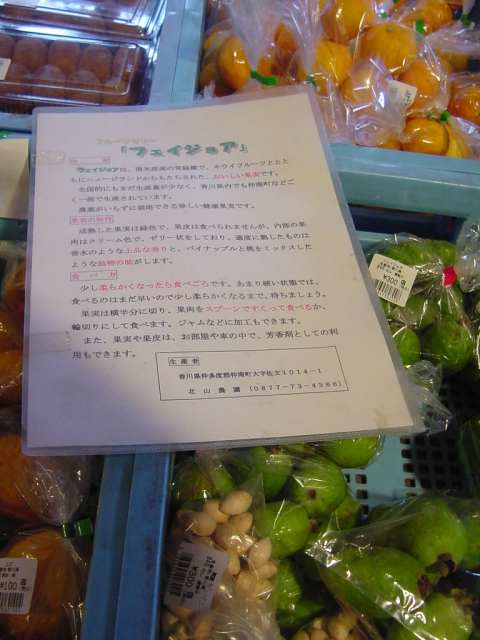 フルーツゼリー
「フェイジョア」
フェイジョアは、南米原産の常緑樹で、キウイフルーツととも
にニュージランドからもたらされた、おいしい果実です。
全国的にもまだ生産量が少なく、香川県内でも仲南町などご
く一部で生産されています。
農薬がいらずに栽培できる珍しい健康果実です。
果実の特性
成熟した果実は緑色で、果皮は食べられませんが、内部の果
肉はクリーム色で、ゼリー状をしており、適度に熟したものは
香水のような上品な香りと、パイナップルと桃をミックスした
ような独特の味がします。
食べ方
少し柔らかくなったら食べごろです。あまり硬い状態では、
食べるのはまだ早いので少し柔らかくなるまで、待ちましょう。
果実は横半分に切り、果肉をスプーンですくって食べるか、
輪切りにして食べます。ジャムなどに加工もできます。
また、果実や果皮は、お部屋や車の中で、芳香剤としての利
用もできます。
生産者
香川県仲多度郡仲南町大字佐文1014-1
北山農園 (0877-73-4366)
¥300
¥300
¥100